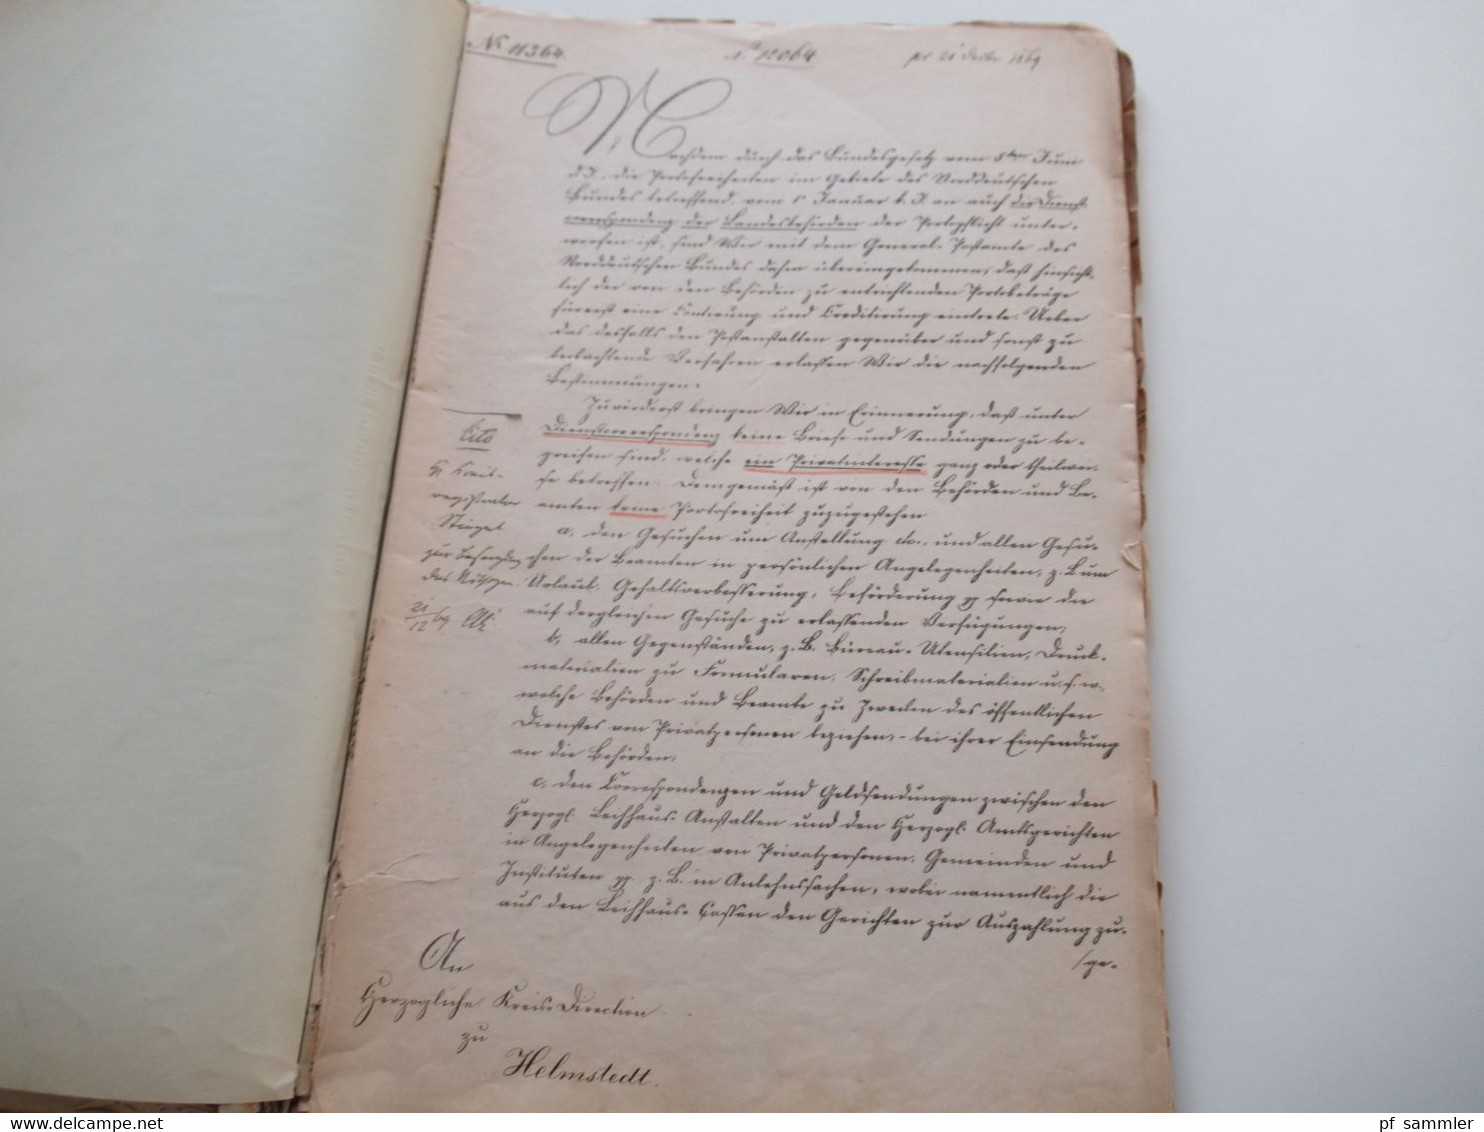 No 11364.
No 12064.
pr 21 Decbr. 1869
Nachdem durch das Bundesgesetz vom 5ten Juni
d. J., die Portofreiheiten im Gebiete des Norddeutschen
Bundes betreffend, vom 1 Januar k. J. an auch die Dienst-
correspondenz der Landesbehörden der Portopflicht unter-
worfen ist, sind Wir mit dem General-Postamte des
Norddeutschen Bundes dahin übereingekommen, daß hinsicht-
lich der von den Behörden zu entrichtenden Portobeträge
fürerst eine Contirung und Creditirung eintrete. Ueber
das desfalls den Postanstalten gegenüber und sonst zu
beobachtende Verfahren erlassen Wir die nachfolgenden
Bestimmungen.
Zuvörderst bringen Wir in Erinnerung, daß unter
Dienstcorrespondenz keine Briefe und Sendungen zu be-
greifen sind, welche ein Privatinteresse ganz oder theilwei-
se betreffen. Demgemäß ist von den Behörden und Be-
amten keine Portofreiheit zuzugestehen
a, den Gesuchen um Anstellung etc., und allen Gesu-
chen der Beamten in persönlichen Angelegenheiten, z. B. um
Urlaub, Gehaltsverbesserung, Beförderung pp sowie die
auf dergleichen Gesuche zu erlassenden Verfügungen,
b, allen Gegenständen, z. B. Büreau-Utensilien, Druck-
materialien zu Formularen, Schreibmaterialien u. s. w.,
welche Behörden und Beamte zu Zwecken des öffentlichen
Dienstes von Privatpersonen beziehen, - bei ihrer Einsendung
an die Behörden,
c, den Correspondenzen und Geldsendungen zwischen den
Herzogl. Leihhaus-Anstalten und den Herzogl. Amtsgerichten
in Angelegenheiten von Privatpersonen, Gemeinden und
Instituten pp. z. B. in Anlehnssachen, wobei namentlich die
aus den Leihhaus-Cassen den Gerichten zur Auszahlung zu-
/ge-
Cito
H. Kreis-
registrator
zur Besorgung
des Nöthigen.
21/12 69
An
Herzogliche Kreis-Direction
zu
Helmstedt.
pf_sammler